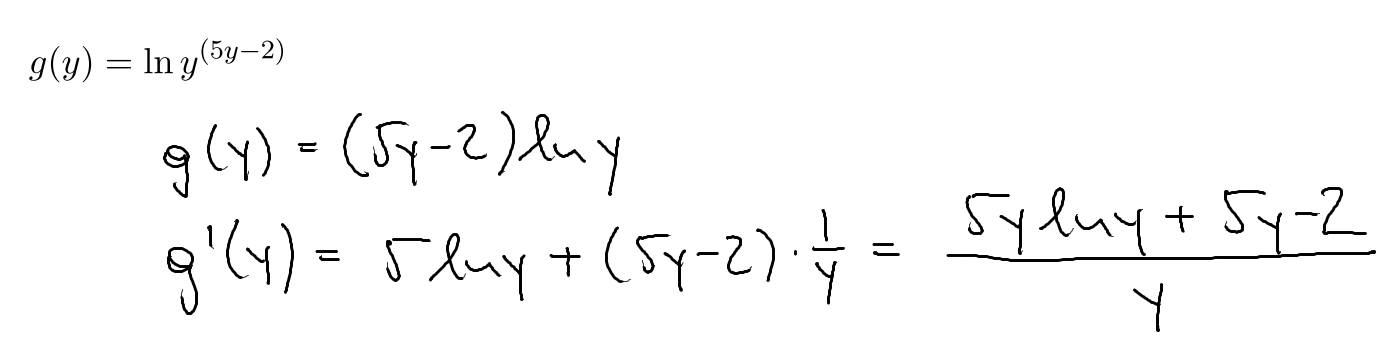 g(y) = ln y^(5y−2)
g(y) = (5y-2) ln y
g'(y) = 5 ln y + (5y-2) · 1/y = (5y ln y + 5y-2)/y